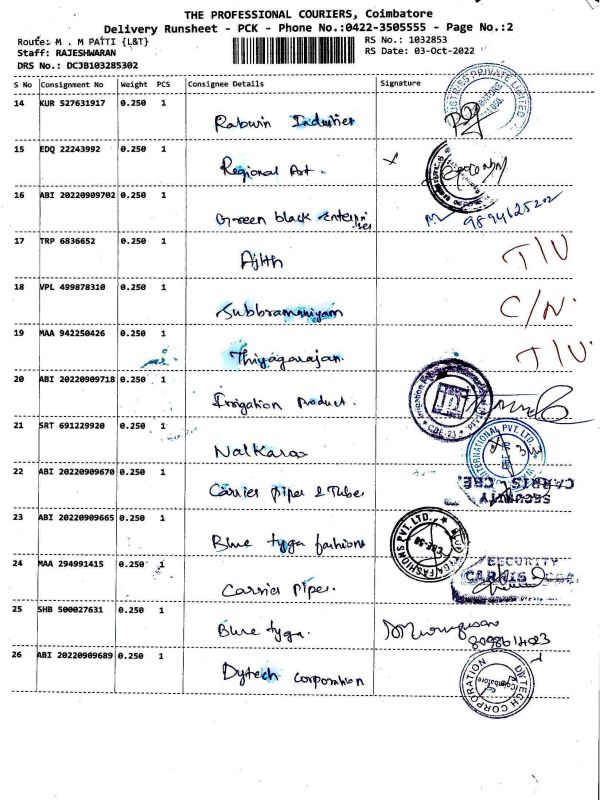 THE PROFESSIONAL COURIERS, Coimbatore
Delivery Runsheet - PCK - Phone No.:0422-3505555 - Page No.:2
Route: M . M PATTI {L&T} RS No.: 1032853
Staff: RAJESHWARAN RS Date: 03-Oct-2022
DRS No.: DCJB103285302
S No Consignment No Weight PCS Consignee Details Signature
14 KUR 527631917 0.250 1
Industries
15 EDQ 22243992 0.250 1
Regional Art.
16 ABI 20220909702 0.250 1
Green black enterprises 9894625202
17 TRP 6836652 0.250 1
Ajith T/U
18 VPL 499878310 0.250 1
Subbramaniyam C/N.
19 MAA 942250426 0.250 1
Thiyagarajan. T/U.
20 ABI 20220909718 0.250 1
Irrigation product.
21 SRT 691229920 0.250 1
INTERNATIONAL PVT. LTD.
22 ABI 20220909670 0.250 1
Carrier pipes & Tube
SECURITY
CARRIS, CBE.
23 ABI 20220909665 0.250 1
Blue tyga fashions
BLUE TYGA FASHIONS PVT. LTD.,
24 MAA 294991415 0.250 1
Carrier pipes.
SECURITY
25 SHB 500027631 0.250 1
Blue tyga.
26 ABI 20220909689 0.250 1
Dytech corporation
DYTECH CORPORATION
Coimbatore